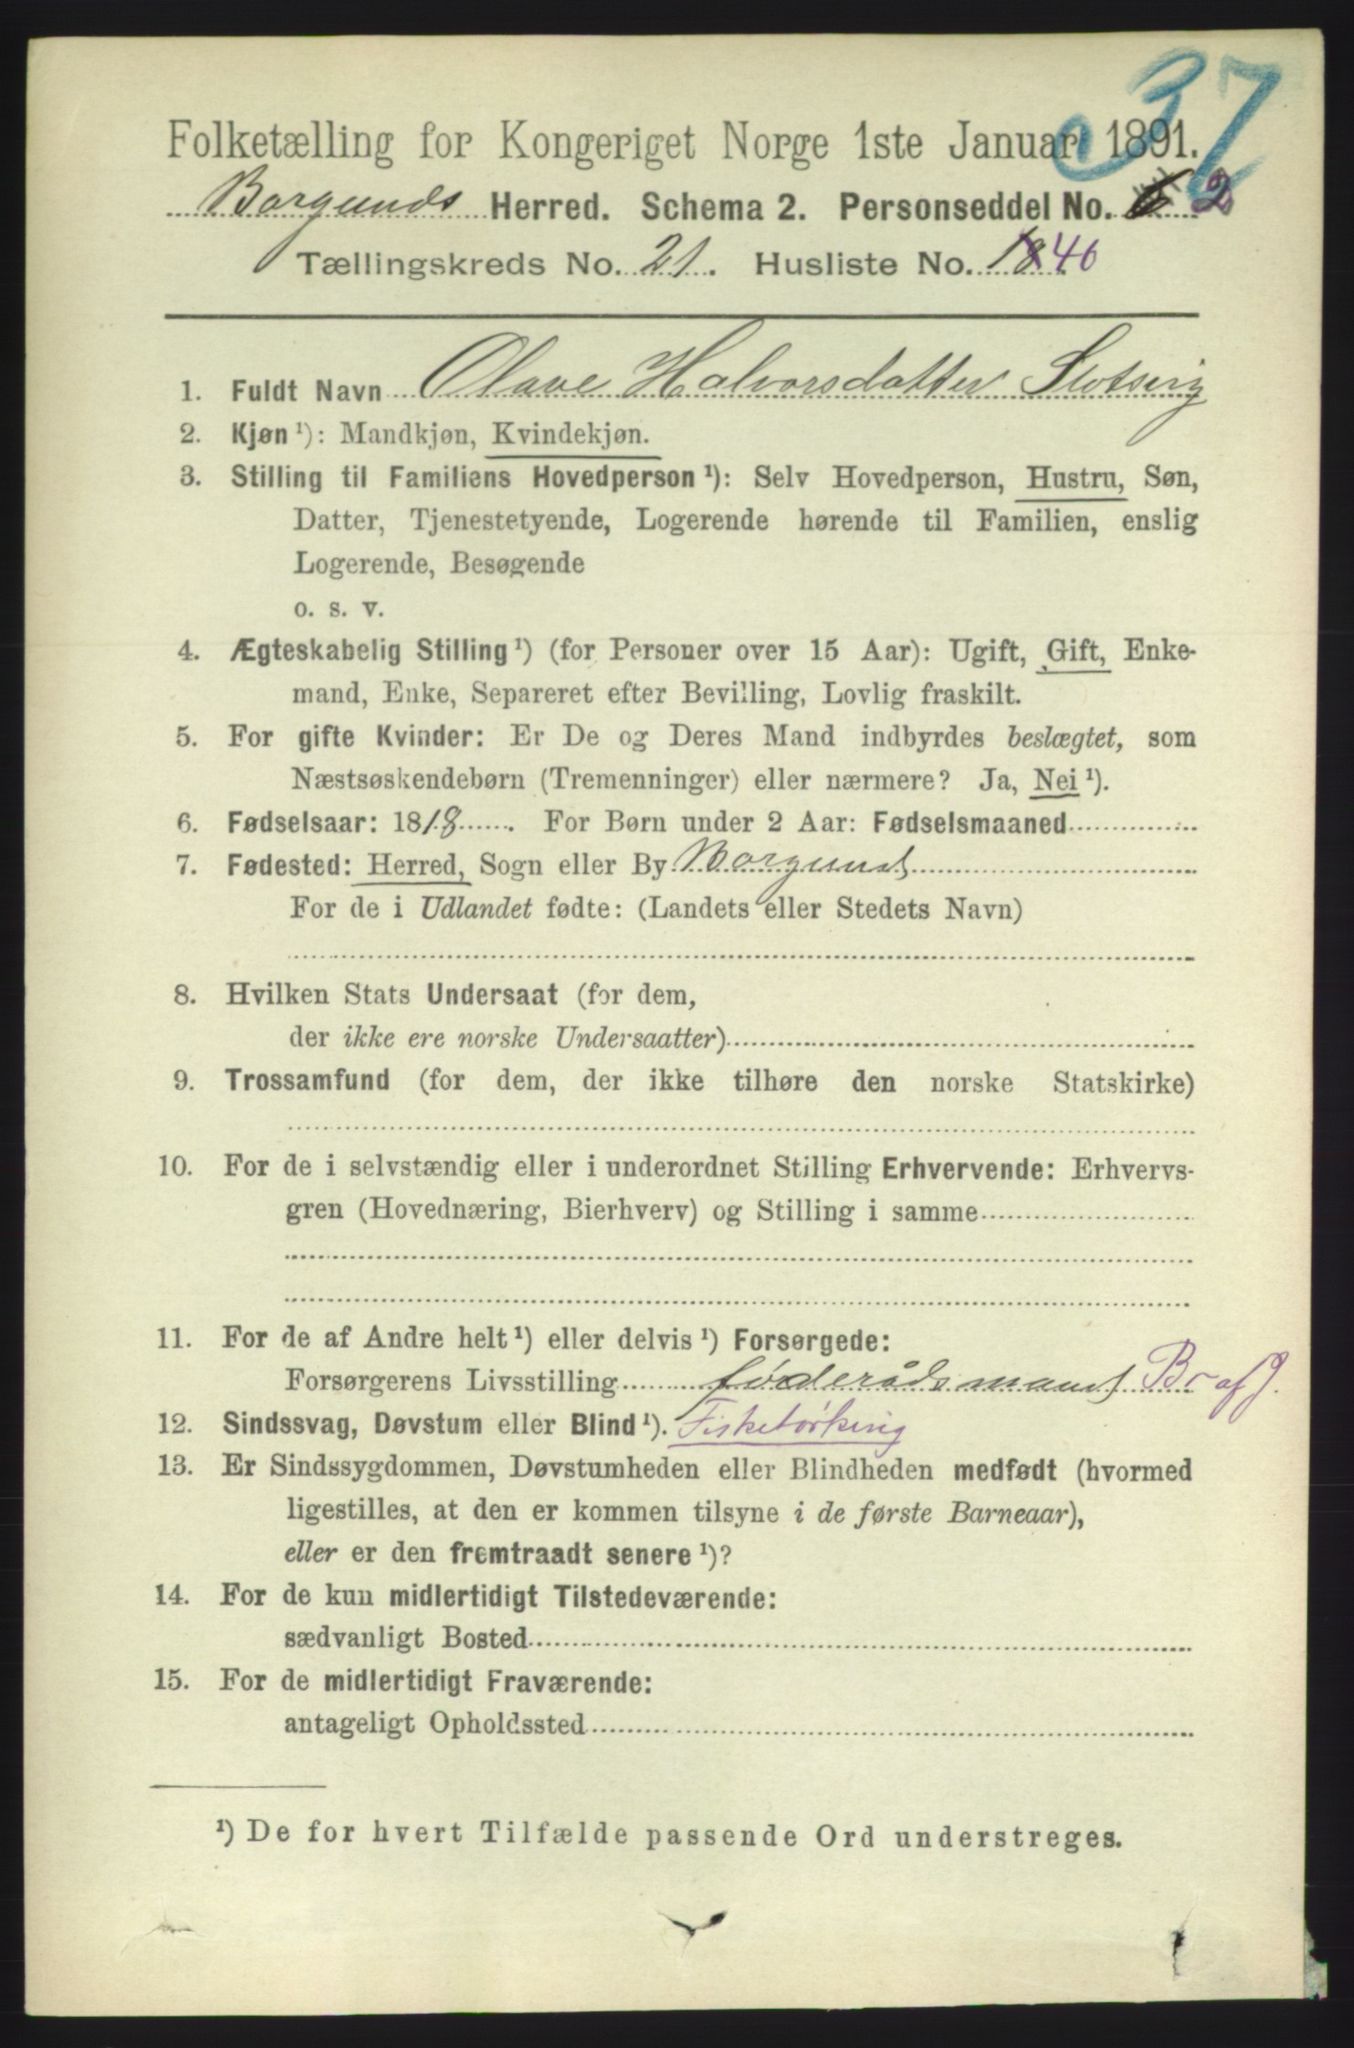 37
Folketælling for Kongeriget Norge 1ste Januar 1891.
Borgunds Herred. Schema 2. Personseddel No. 6 2
Tællingskreds No. 21. Husliste No. 18 40
1. Fuldt Navn Olave Halvorsdatter
2. Kjøn ¹): Mandkjøn, Kvindekjøn.
3. Stilling til Familiens Hovedperson ¹): Selv Hovedperson, Hustru, Søn,
Datter, Tjenestetyende, Logerende hørende til Familien, enslig
Logerende, Besøgende
o. s. v.
4. Ægteskabelig Stilling ¹) (for Personer over 15 Aar): Ugift, Gift, Enke-
mand, Enke, Separeret efter Bevilling, Lovlig fraskilt.
5. For gifte Kvinder: Er De og Deres Mand indbyrdes beslægtet, som
Næstsøskendebørn (Tremenninger) eller nærmere? Ja, Nei ¹).
6. Fødselsaar: 1818. For Børn under 2 Aar: Fødselsmaaned
7. Fødested: Herred, Sogn eller By Borgund
For de i Udlandet fødte: (Landets eller Stedets Navn)
8. Hvilken Stats Undersaat (for dem,
der ikke ere norske Undersaatter)
9. Trossamfund (for dem, der ikke tilhøre den norske Statskirke)
10. For de i selvstændig eller i underordnet Stilling Erhvervende: Erhvervs-
gren (Hovednæring, Bierhverv) og Stilling i samme
11. For de af Andre helt ¹) eller delvis ¹) Forsørgede:
Forsørgerens Livsstilling føderådsmand Br af J.
12. Sindssvag, Døvstum eller Blind ¹). Fisketørking
13. Er Sindssygdommen, Døvstumheden eller Blindheden medfødt (hvormed
ligestilles, at den er kommen tilsyne i de første Barneaar),
eller er den fremtraadt senere ¹)?
14. For de kun midlertidigt Tilstedeværende:
sædvanligt Bosted
15. For de midlertidigt Fraværende:
antageligt Opholdssted
¹) De for hvert Tilfælde passende Ord understreges.